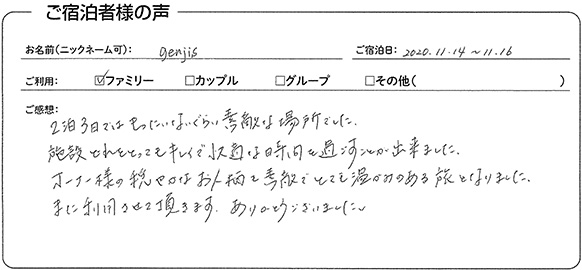 ご宿泊者様の声
お名前(ニックネーム可): genjis ご宿泊日: 2020.11.14～11.16
ご利用: ☑ファミリー □カップル □グループ □その他( )
ご感想:
2泊3日ではもったいないぐらい素敵な場所でした。
施設どれをとってもキレイで快適な時間を過ごすことが出来ました。
オーナー様の穏やかなお人柄も素敵でとても温かみのある旅となりました。
また利用させて頂きます。ありがとうございました。